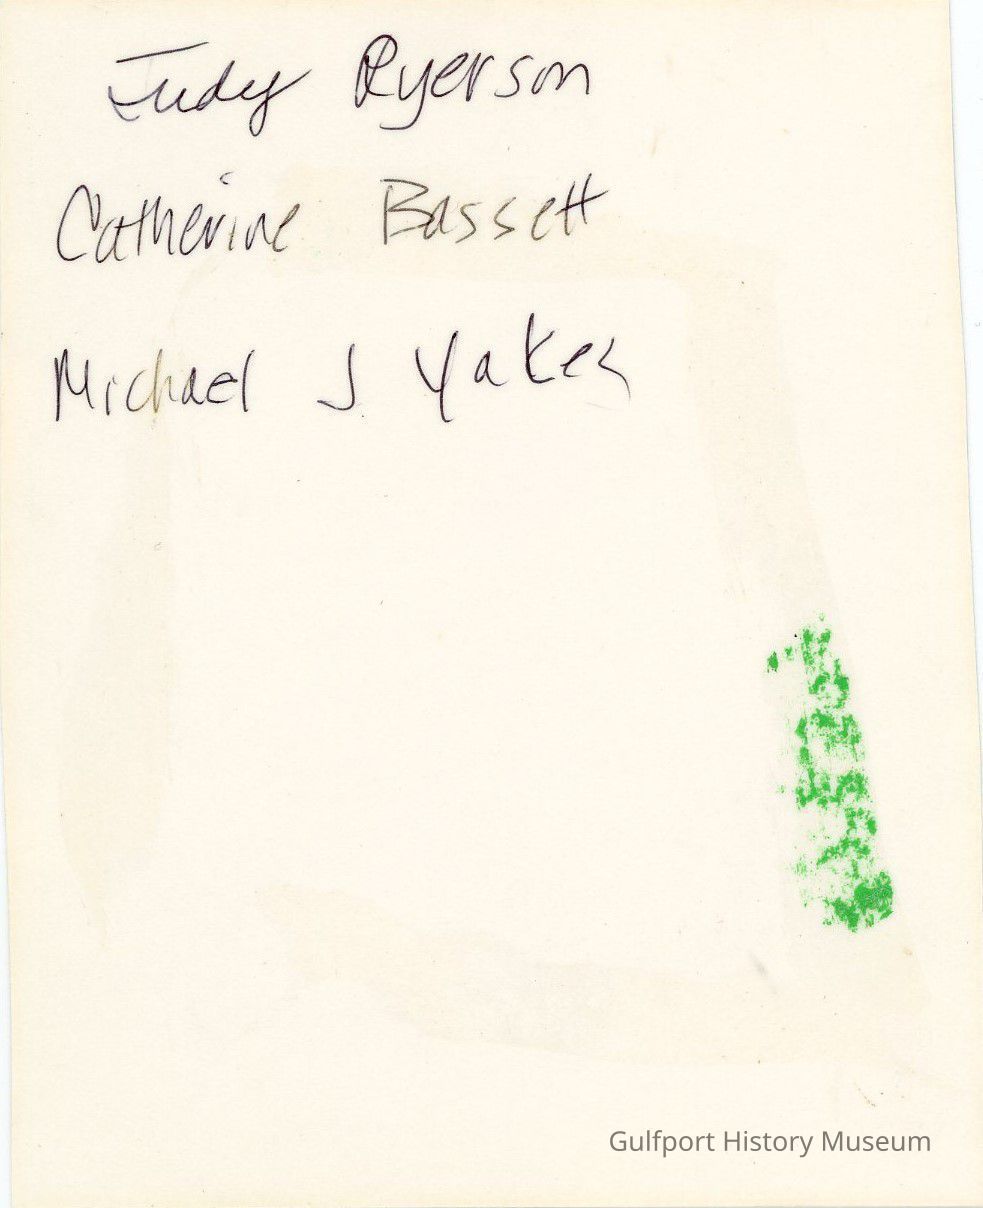 Judy Ryerson
Catherine Bassett
Michael J Yakes
Gulfport History Museum